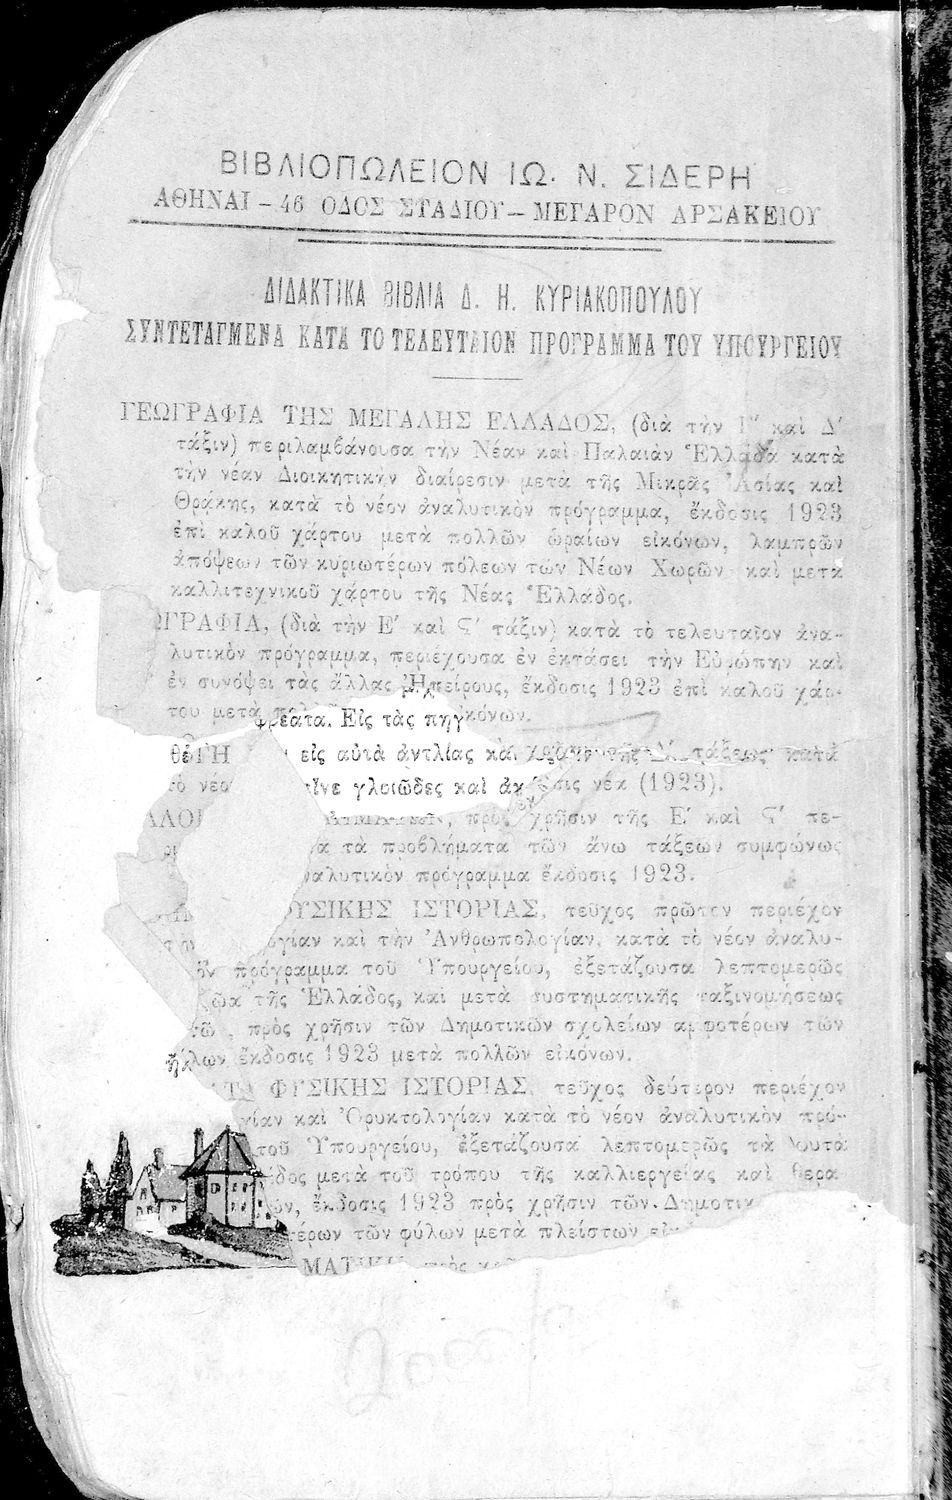 ΒΙΒΛΙΟΠΩΛΕΙΟΝ ΙΩ. Ν. ΣΙΔΕΡΗ
ΑΘΗΝΑΙ – 46 ΟΔΟΣ ΣΤΑΔΙΟΥ – ΜΕΓΑΡΟΝ ΑΡΣΑΚΕΙΟΥ
ΔΙΔΑΚΤΙΚΑ ΒΙΒΛΙΑ Δ. Η. ΚΥΡΙΑΚΟΠΟΥΛΟΥ
ΣΥΝΤΕΤΑΓΜΕΝΑ ΚΑΤΑ ΤΟ ΤΕΛΕΥΤΑΙΟΝ ΠΡΟΓΡΑΜΜΑ ΤΟΥ ΥΠΟΥΡΓΕΙΟΥ
ΓΕΩΓΡΑΦΙΑ ΤΗΣ ΜΕΓΑΛΗΣ ΕΛΛΑΔΟΣ, (διὰ τὴν Γ΄ καὶ Δ΄
τάξιν) περιλαμβάνουσα τὴν Νέαν καὶ Παλαιὰν Ἑλλάδα κατὰ
τὴν νέαν Διοικητικὴν διαίρεσιν μετὰ τῆς Μικρᾶς Ἀσίας καὶ
Θρᾴκης, κατὰ τὸ νέον ἀναλυτικὸν πρόγραμμα, ἔκδοσις 1923
ἐπὶ καλοῦ χάρτου μετὰ πολλῶν ὡραίων εἰκόνων, λαμπρῶν
ἀπόψεων τῶν κυριωτέρων πόλεων τῶν Νέων Χωρῶν καὶ μετὰ
καλλιτεχνικοῦ χάρτου τῆς Νέας Ἑλλάδος.
ΩΓΡΑΦΙΑ, (διὰ τὴν Ε΄ καὶ Ϛ΄ τάξιν) κατὰ τὸ τελευταῖον ἀνα-
λυτικὸν πρόγραμμα, περιέχουσα ἐν ἐκτάσει τὴν Εὐρώπην καὶ
ἐν συνόψει τὰς ἄλλας Ἠπείρους, ἔκδοσις 1923 ἐπὶ καλοῦ χάρ-
του μετὰ φρέατα. Εἰς τὰς πηγ κόνων.
εἰς αὐτὰ ἀντλίας καὶ τάξεως κατὰ
τὸ νέον γλοιῶδες καὶ ἀκ νέα (1923).
πρὸς χρῆσιν τῆς Ε΄ καὶ Ϛ΄ πε-
τὰ προβλήματα τῶν ἄνω τάξεων συμφώνως
ναλυτικὸν πρόγραμμα ἔκδοσις 1923.
ΥΣΙΚΗΣ ΙΣΤΟΡΙΑΣ, τεῦχος πρῶτον περιέχον
ογίαν καὶ τὴν Ἀνθρωπολογίαν, κατὰ τὸ νέον ἀναλυ-
πρόγραμμα τοῦ Ὑπουργείου, ἐξετάζουσα λεπτομερῶς
ζῶα τῆς Ἑλλάδος, καὶ μετὰ συστηματικῆς ταξινομήσεως
πρὸς χρῆσιν τῶν Δημοτικῶν σχολείων ἀμφοτέρων τῶν
φύλων ἔκδοσις 1923 μετὰ πολλῶν εἰκόνων.
ΦΥΣΙΚΗΣ ΙΣΤΟΡΙΑΣ, τεῦχος δεύτερον περιέχον
γίαν καὶ Ὀρυκτολογίαν κατὰ τὸ νέον ἀναλυτικὸν πρό-
τοῦ Ὑπουργείου, ἐξετάζουσα λεπτομερῶς τὰ φυτὰ
άδος μετὰ τοῦ τρόπου τῆς καλλιεργείας καὶ θερα
ῶν, ἔκδοσις 1923 πρὸς χρῆσιν τῶν Δημοτικ
τέρων τῶν φύλων μετὰ πλείστων εἰκ
ΜΑΤΙΚΗ πρὸς